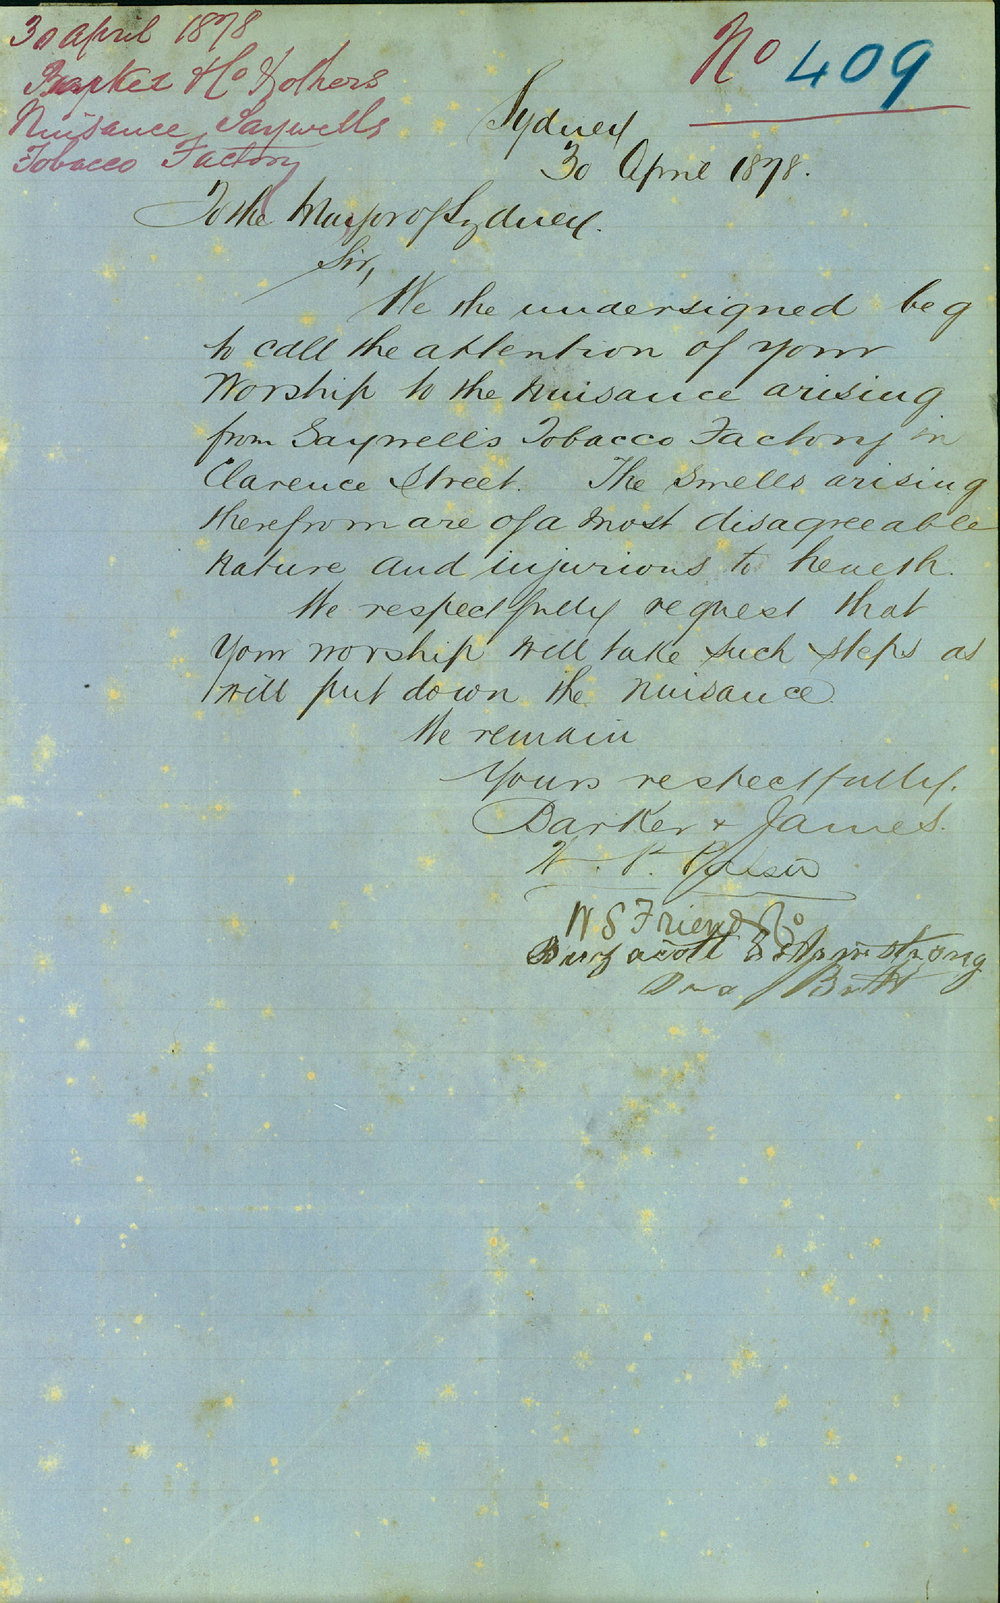 30 April 1878
Barker & Co & others
Nuisance Saywells
Tobacco Factory
No 409
Sydney
30 April 1878.
To the Mayor of Sydney.
Sir,
We the undersigned beg
to call the attention of your
Worship to the nuisance arising
from Saywell's Tobacco Factory in
Clarence Street. The smells arising
therefrom are of a most disagreeable
nature and injurious to health.
We respectfully request that
your worship will take such steps as
will put down the nuisance.
We remain
Yours respectfully.
Barker & James.
W. P.
W S Friend & Co
Burzacott & Armstrong